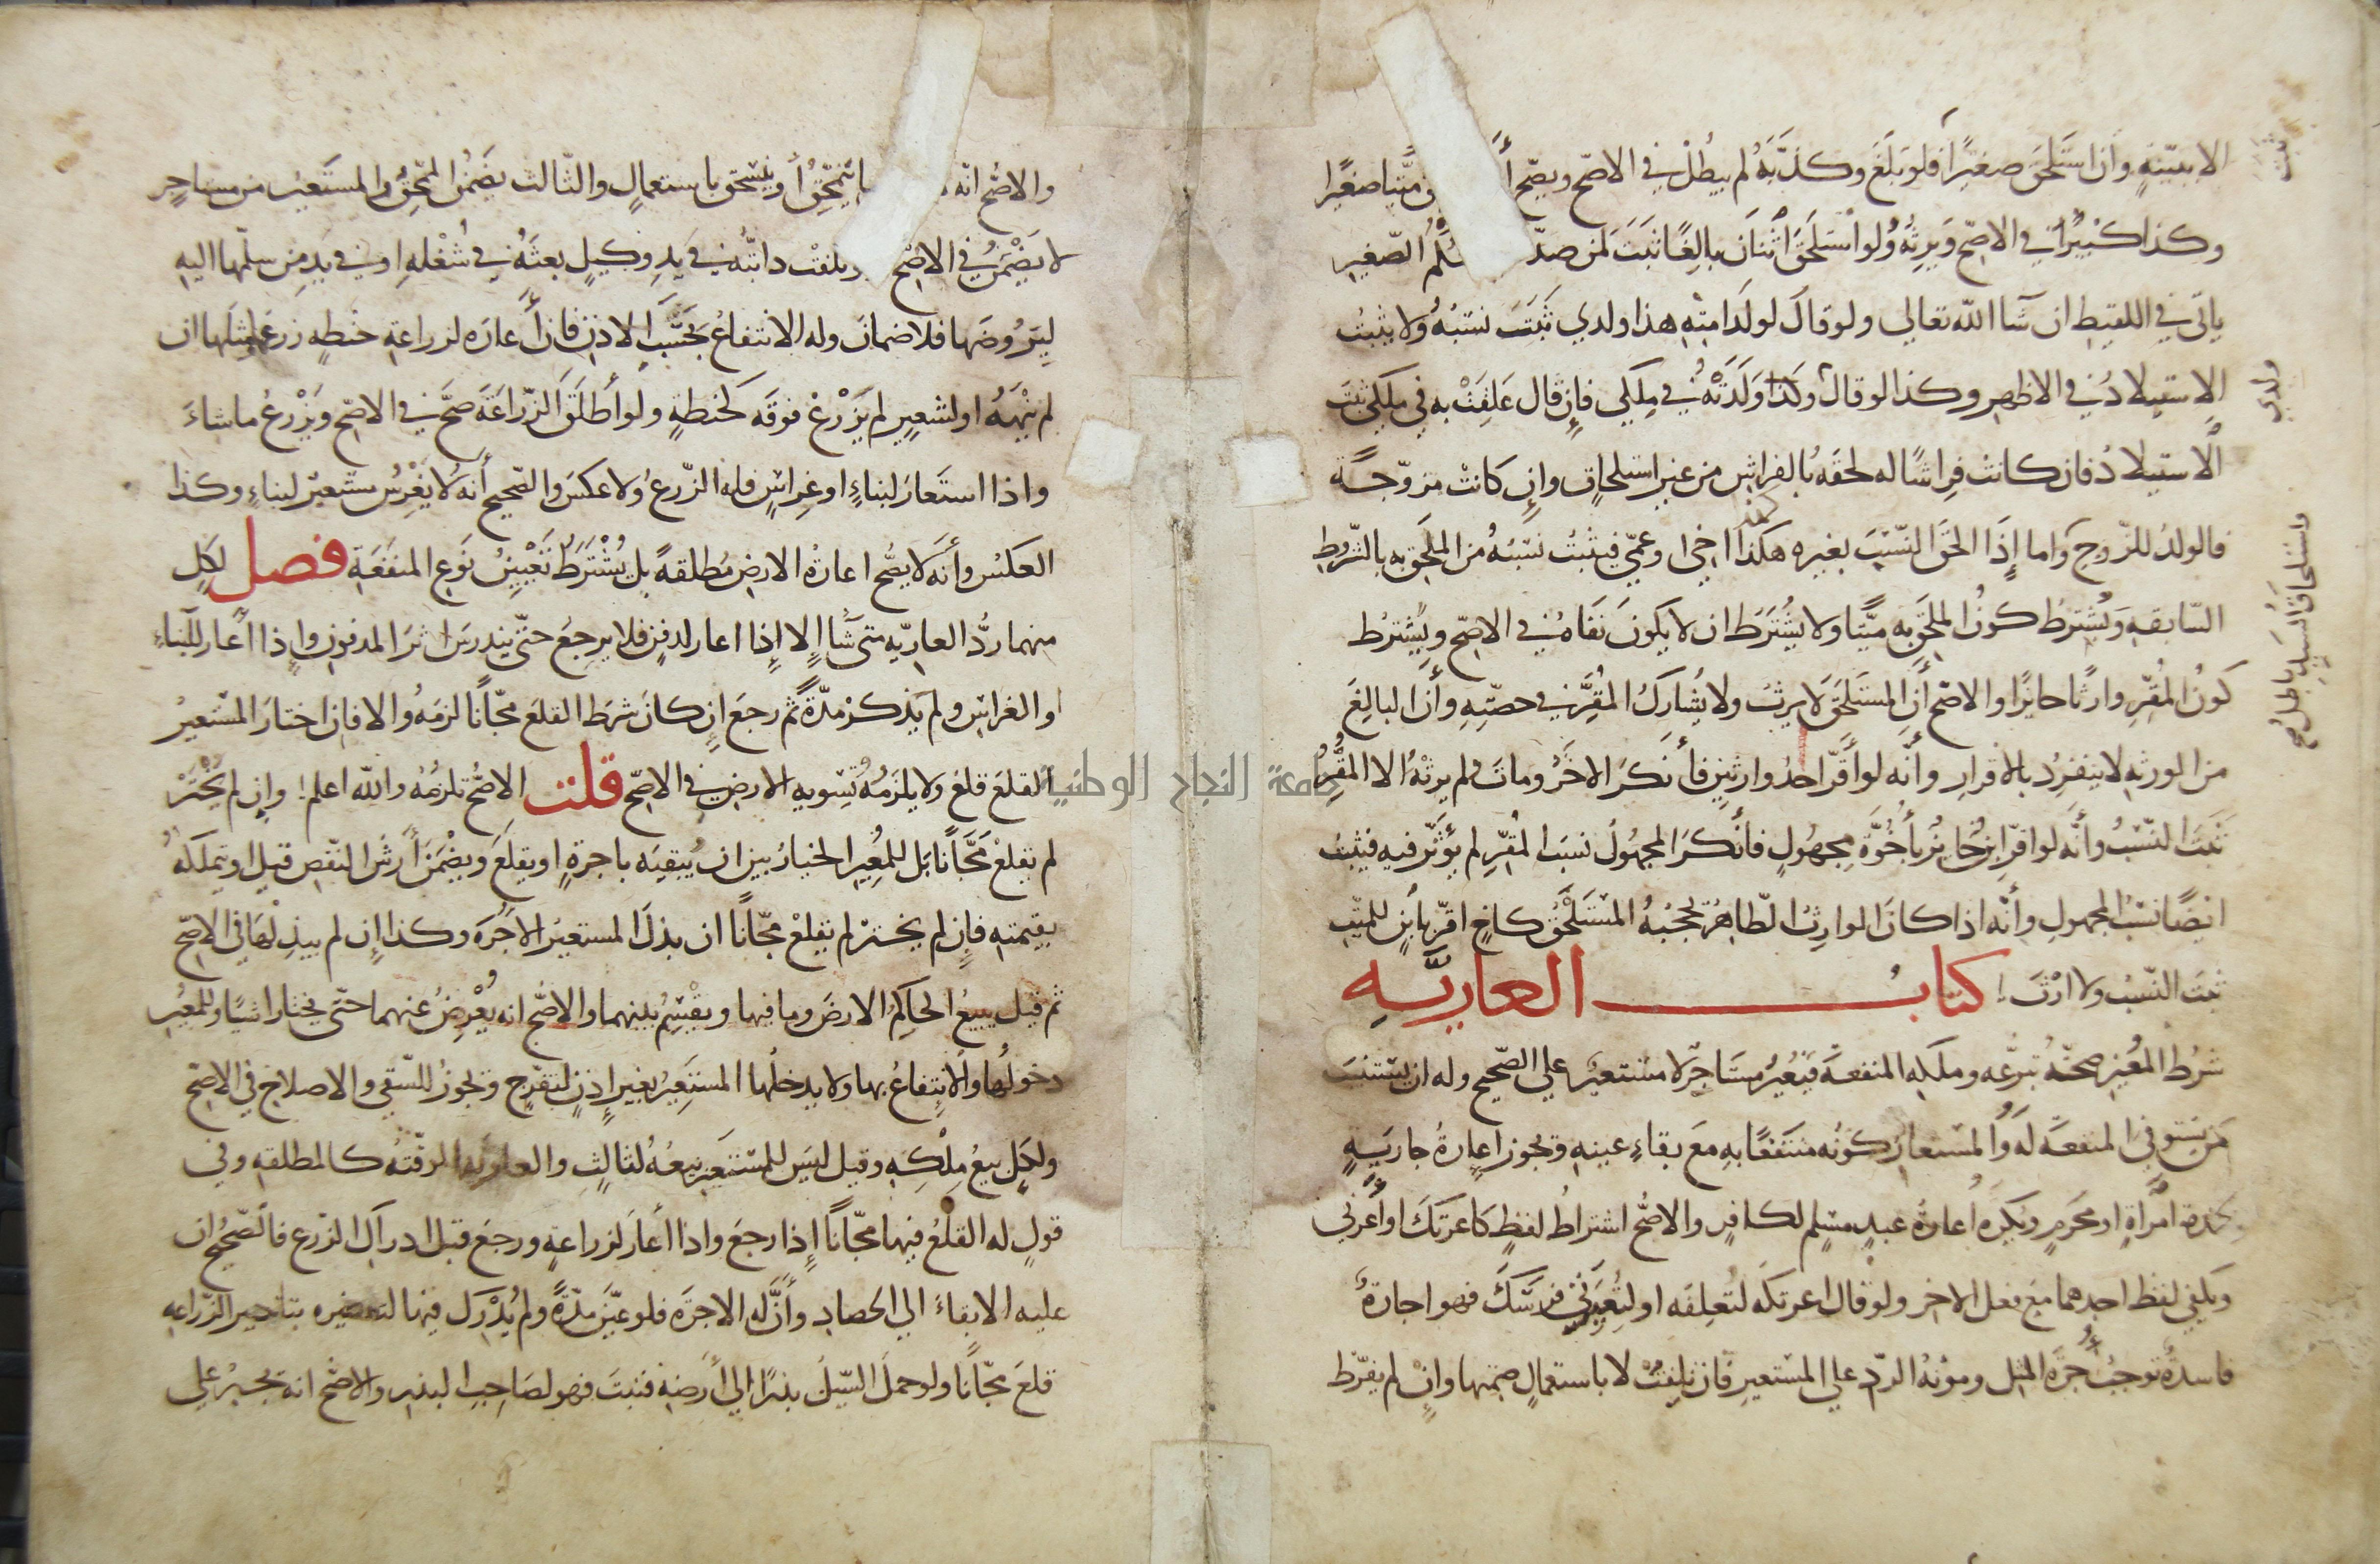 الا ببيّنةٍ وان استلحق صغيرًا فلو بلغ وكذّبه لم يبطل في الاصحّ ويصحّ ميّتا صغيرًا
وكذا كبيرًا في الاصحّ ويرثه ولو استلحق اثنان بالغًا ثبت لمن صدّ الصّغير
ياتي في اللقيط ان شآ الله تعالي ولو قال لولد امتِهِ هذا ولدي ثبت نسبُهُ ولا يثبتُ
الاستيلادُ في الاظهر وكذا لو قال ولدته في ملكي فإن قال علقت به في ملكي ثبت
الاستيلادُ فان كانت فِراشًا له لحقه بالفراش من غير استلحاق وإن كانت مزوّجة
فالولدُ للزّوج واما إذا الحق النّسب بغيره هكذا اخي او عمّي فيثبتُ نسبُهُ من الملحق به بالشّروط
السّابقه ويُشترطُ كونُ الملحق به ميّتا ولا يشترط ان لا يكون نفاه في الاصحّ ويشترطُ
كونُ المُقِرِّ وارثًا حايزًا والاصحّ أن المستلحق لا يرثُ ولا يُشارك المُقِرَّ في حصّتِهِ وأن البالغ
من الورثه لا ينفردُ بالاقرار وأنّه لو أقرّ احدُ وارثين فأنكر الاخر ومات ولم يرثه الا المُقِرُّ
ثبت النّسبُ وأنّه لو اقرّ ابن حايز بأُخُوّةِ مجهولٍ فأنكر المجهُولُ نسب المُقرّ لم يؤثّر فيه فيثبتُ
ايضًا نسَبُ المجهول وأنّه اذا كان الوارثُ الظّاهرُ يحجبُهُ المستلحَقُ كاخٍ اقرّ بابنٍ للميّت
ثبت النّسبُ ولا ارْث كتاب العاريّه
شرطُ المُعير صحّةُ تبرّعه وملكه المنفعة فيُعيرُ مستاجر لا مستعيرٌ علي الصّحيح وله ان يستنيب
من يستوفي المنفعة له والمستعارُ كونُه منتفعًا به مع بقاءِ عينه وتجوز اعارةُ جاريةٍ
لخدمة امراةٍ او محرمٍ ويكره أعارة عبدٍ مسلم لكافرٍ والاصحُّ اشتراطُ لفظٍ كاعرتك أو أعرني
ويكفي لفظ احدهما مع فعل الاخر ولو قال اعرتكه لتعلفه او لتُعيرني فرسك فهو اجارةٌ
فاسدةٌ توجبُ أُجرة المثل ومؤنةُ الردّ علي المستعير فان تلفت لا باستعمالٍ ضمنها وإن لم يفرّط
ولدي
واستلحاق
والاصحّ انّه ينمحق أو ينسحق باستعمالٍ والثّالث يضمنُ المُنمحق والمستعيرُ من مستاجرٍ
لا يضمنُ في الاصحّ تلفت دابّتُه في يد وكيلٍ بعثه في شُغْلِهِ او في يد من سلّمها اليه
ليروضها فلا ضمان وله الانتفاعُ بحسب الاذن فان أعاره لزراعةِ حنطةٍ زرعها ومثلها ان
لم ينهَهُ او لشعيرٍ لم يزرعْ فوقه كحنطةٍ ولو أطلق الزّراعة صحّ في الاصحّ ويزرعُ ما شاءَ
واذا استعار لبناءٍ او غِراسٍ فله الزّرعُ ولا عكسَ والصّحيح أنه لا يغرسُ مستعيرٌ لبناءٍ وكذا
العكسُ وأنّه لا يصحّ اعارةُ الارض مُطلقةً بل يُشترطُ تعيينُ نوع المنفعة فصل لكلٍ
منهما ردُّ العاريّه متى شآ إلا إذا اعار لدفنٍ فلا يرجع حتّى يندرس اثرُ المدفون وإذا أعار للبناءِ
او الغراس ولم يذكر مدّةً ثم رجع إن كان شرط القلع مجّانًا لزمَهُ والا فان اختار المستعيرُ
القلع قلع ولا يلزمُهُ تسويه الارض في الاصحّ قلت الاصحُّ تلزمُهُ والله اعلم وإن لم يخترْ
لم يقلعْ مجّانًا بل للمُعيرِ الخيارُ بين ان يُبقِيَه باجرةٍ او يقلع ويضمن أرش النّقص قيل او يتملكه
بقيمته فإن لم يختر لم يقلعْ مجّانًا ان بذل المستعيرُ الاجرَه وكذا إن لم يبذلها في الاصحّ
ثم قيل يبيعُ الحاكمُ الارض وما فيها ويقسم بينهما والاصحّ انه يُعْرِضُ عنهما حتّى يختارا شيًا وللمعير
دخولُها والانتفاعُ بها ولا يدخلُها المستعيرُ بغير إذنٍ لتفرّجٍ وتجوزُ للسّقي والاصلاح في الاصحّ
ولكلٍ بيعُ مِلكِهِ وقيل ليس للمستعير بيعُهُ لثالثٍ والعاريّه المؤقّتة كالمطلقه وفي
قولٍ له القلعُ فيها مجّانًا إذا رجع واذا أعار لزراعةٍ ورجع قبل ادراك الزّرع فالصّحيحُ ان
عليه الابقاءَ الي الحصاد وأنّ له الاجرَه فلو عيّن مدّةً ولم يُدرك فيها لتقصيره بتاخير الزّراعه
قلع مجّانًا ولو حملَ السّيلُ بذرًا الي أرضِهِ فنبت فهو لصاحب البذر والاصحّ انه يجبرُ علي
جامعة النجاح الوطنية